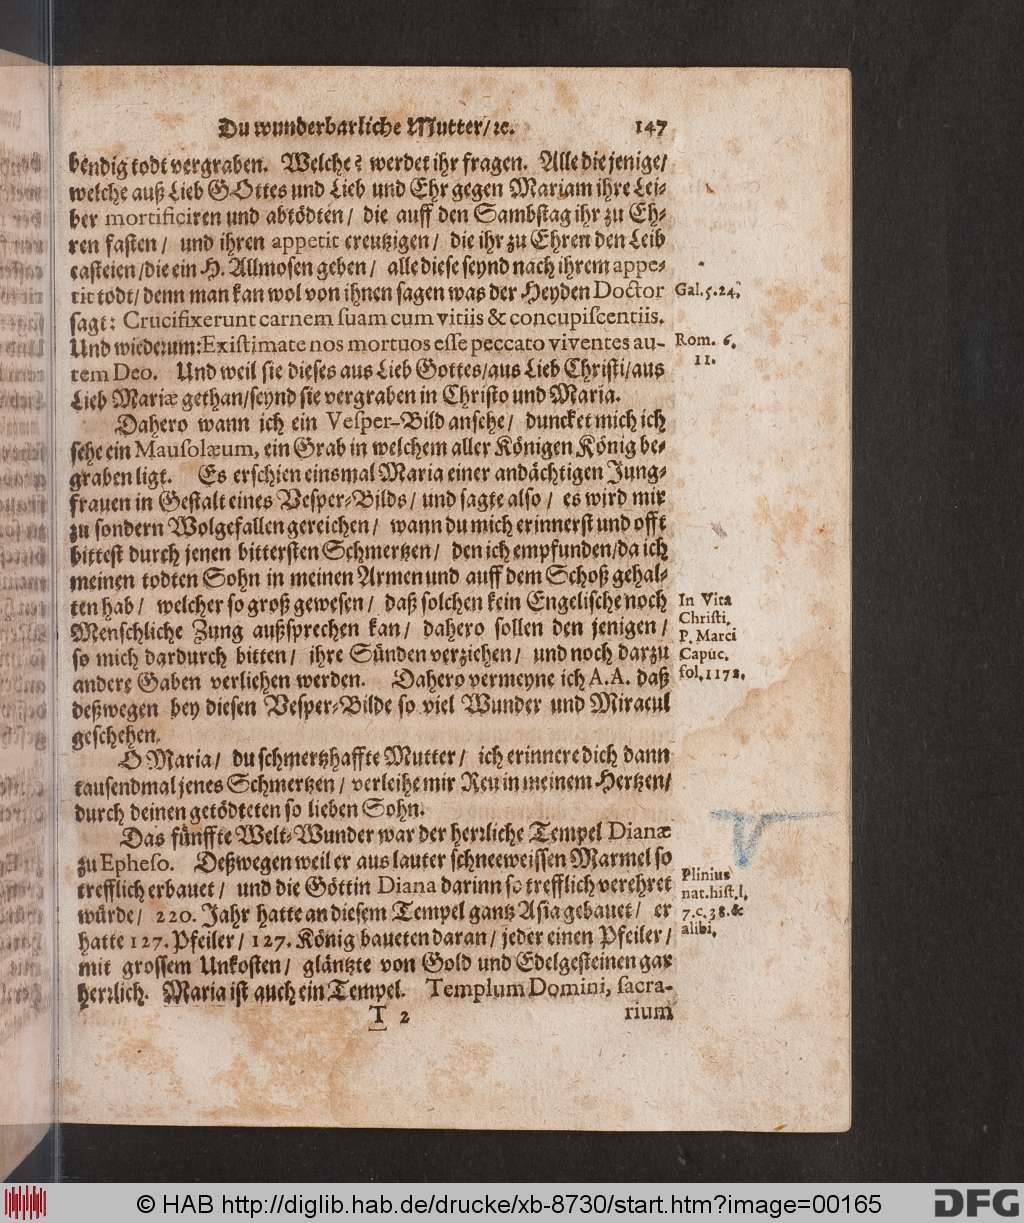 Du wunderbarliche Mutter/ ꝛc. 147
bendig todt vergraben. Welche? werdet ihr fragen. Alle die jenige/
welche auß Lieb GOttes und Lieb und Ehr gegen Mariam ihre Lei-
ber mortificiren und abtödten/ die auff den Sambstag ihr zu Eh-
ren fasten/ und ihren appetit creutzigen/ die ihr zu Ehren den Leib
casteien/ die ein H. Allmosen geben/ alle diese seynd nach ihrem appe-
tit todt/ denn man kan wol von ihnen sagen was der Heyden Doctor
Gal. 5. 24.
sagt: Crucifixerunt carnem suam cum vitiis & concupiscentiis.
Und wiederum: Existimate nos mortuos esse peccato viventes au-
Rom. 6.
11.
tem Deo. Und weil sie dieses aus Lieb Gottes/ aus Lieb Christi/ aus
Lieb Mariæ gethan/ seynd sie vergraben in Christo und Maria.
Dahero wann ich ein Vesper-Bild ansehe/ duncket mich ich
sehe ein Mausolæum, ein Grab in welchem aller Königen König be-
graben ligt. Es erschien einsmal Maria einer andächtigen Jung-
frauen in Gestalt eines Vesper-Bilds/ und sagte also/ es wird mir
zu sondern Wolgefallen gereichen/ wann du mich erinnerst und offt
bittest durch jenen bittersten Schmertzen/ den ich empfunden/ da ich
meinen todten Sohn in meinen Armen und auff dem Schoß gehal-
ten hab/ welcher so groß gewesen/ daß solchen kein Engelische noch
Menschliche Zung außsprechen kan/ dahero sollen den jenigen/
so mich dardurch bitten/ ihre Sünden verziehen/ und noch darzu
andere Gaben verliehen werden. Dahero vermeyne ich A. A. daß
In Vita
Christi.
P. Marci
Capuc.
fol. 1172.
deßwegen bey diesen Vesper-Bilde so viel Wunder und Miracul
geschehen.
O Maria/ du schmertzhaffte Mutter/ ich erinnere dich dann
tausendmal jenes Schmertzen/ verleihe mir Reu in meinem Hertzen/
durch deinen getödteten so lieben Sohn.
Das fünffte Welt-Wunder war der herrliche Tempel Dianæ
zu Epheso. Deßwegen weil er aus lauter schneeweissen Marmel so
trefflich erbauet/ und die Göttin Diana darinn so trefflich verehret
würde/ 220. Jahr hatte an diesem Tempel gantz Asia gebauet/ er
hatte 127. Pfeiler/ 127. König baueten daran/ jeder einen Pfeiler/
Plinius
nat. hist. l.
7. c. 38. &
alibi.
mit grossem Unkosten/ gläntzte von Gold und Edelgesteinen gar
herrlich. Maria ist auch ein Tempel. Templum Domini, sacra-
T 2 rium
© HAB http://diglib.hab.de/drucke/xb-8730/start.htm?image=00165
DFG